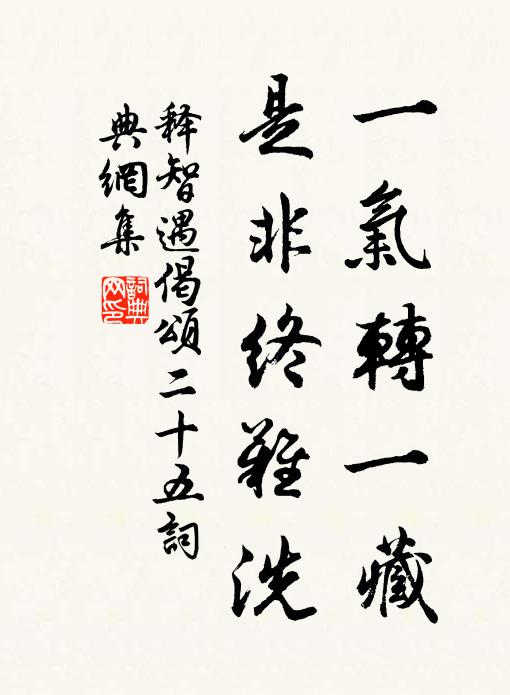 一氣轉一藏
是非終難洗
释智遇偈頌二十五詞
典網集
詞典
网印